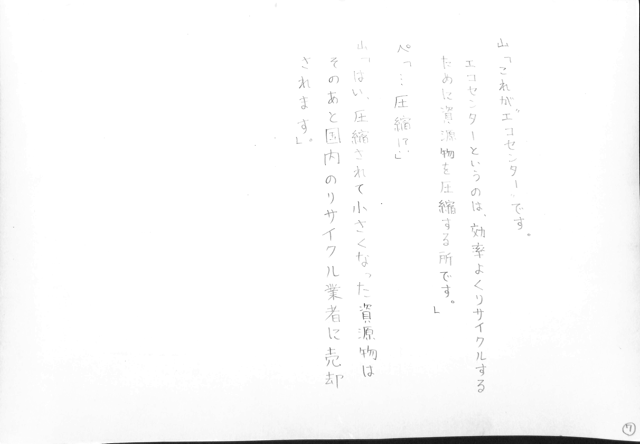 山「これが"エコセンター"です。
エコセンターというのは、効率よくリサイクルする
ために資源物を圧縮する所です。」
ペ「っ…圧縮!?」
山「はい、圧縮されて小さくなった資源物は
そのあと国内のリサイクル業者に売却
されます。」